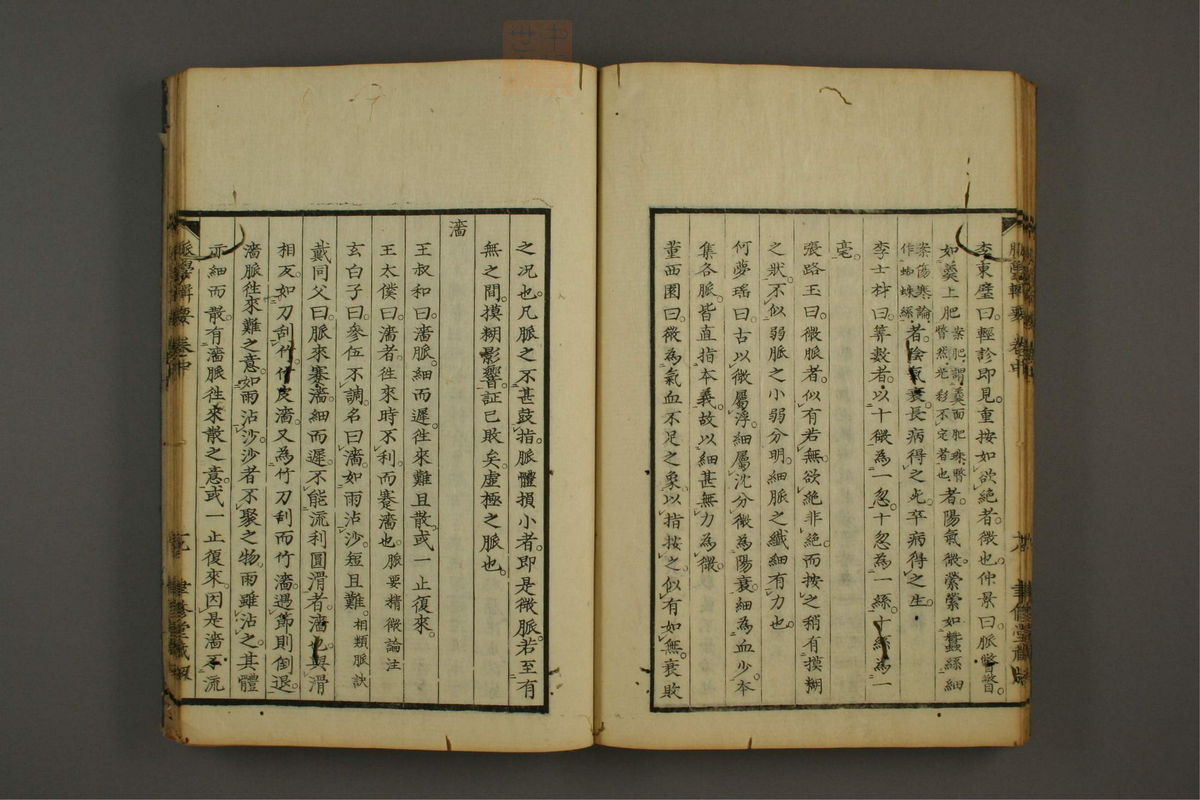 李東璧曰輕診即見重按如欲絶者微也仲景曰脈瞥瞥
如羹上肥案肥謂羹面肥珠瞥瞥然光彩不定者也者陽氣微縈縈如蠶絲細
案傷寒論作蜘蛛絲者陰氣衰長病得之死卒病得之生
李士材曰算數者以十微為一忽十忽為一絲十絲為一
毫
張路玉曰微脈者似有若無欲絶非絶而按之稍有摸糊
之狀不似弱脈之小弱分明細脈之纖細有力也
何夢瑤曰古以微屬浮細屬沈分微為陽衰細為血少本
集各脈皆直指本義故以細甚無力為微
董西園曰微為氣血不足之象以指按之似有如無衰敗
脈學輯要 卷中
聿修堂藏版
之況也凡脈之不甚鼓指脈體損小者即是微脈若至有
無之間摸糊影響証已敗矣虛極之脈也
濇
王叔和曰濇脈細而遲往來難且散或一止復來
王太僕曰濇者往來時不利而蹇濇也脈要精微論注
玄白子曰參伍不調名曰濇如雨沾沙短且難相類脈訣
戴同父曰脈來蹇濇細而遲不能流利圓滑者濇也與滑
相反如刀刮竹竹皮濇又為竹刀刮而竹濇遇節則倒退
濇脈往來難之意如雨沾沙沙者不聚之物雨雖沾之其體
亦細而散有濇脈往來散之意或一止復來因是濇不流
脈學輯要 卷中
聿修堂藏版